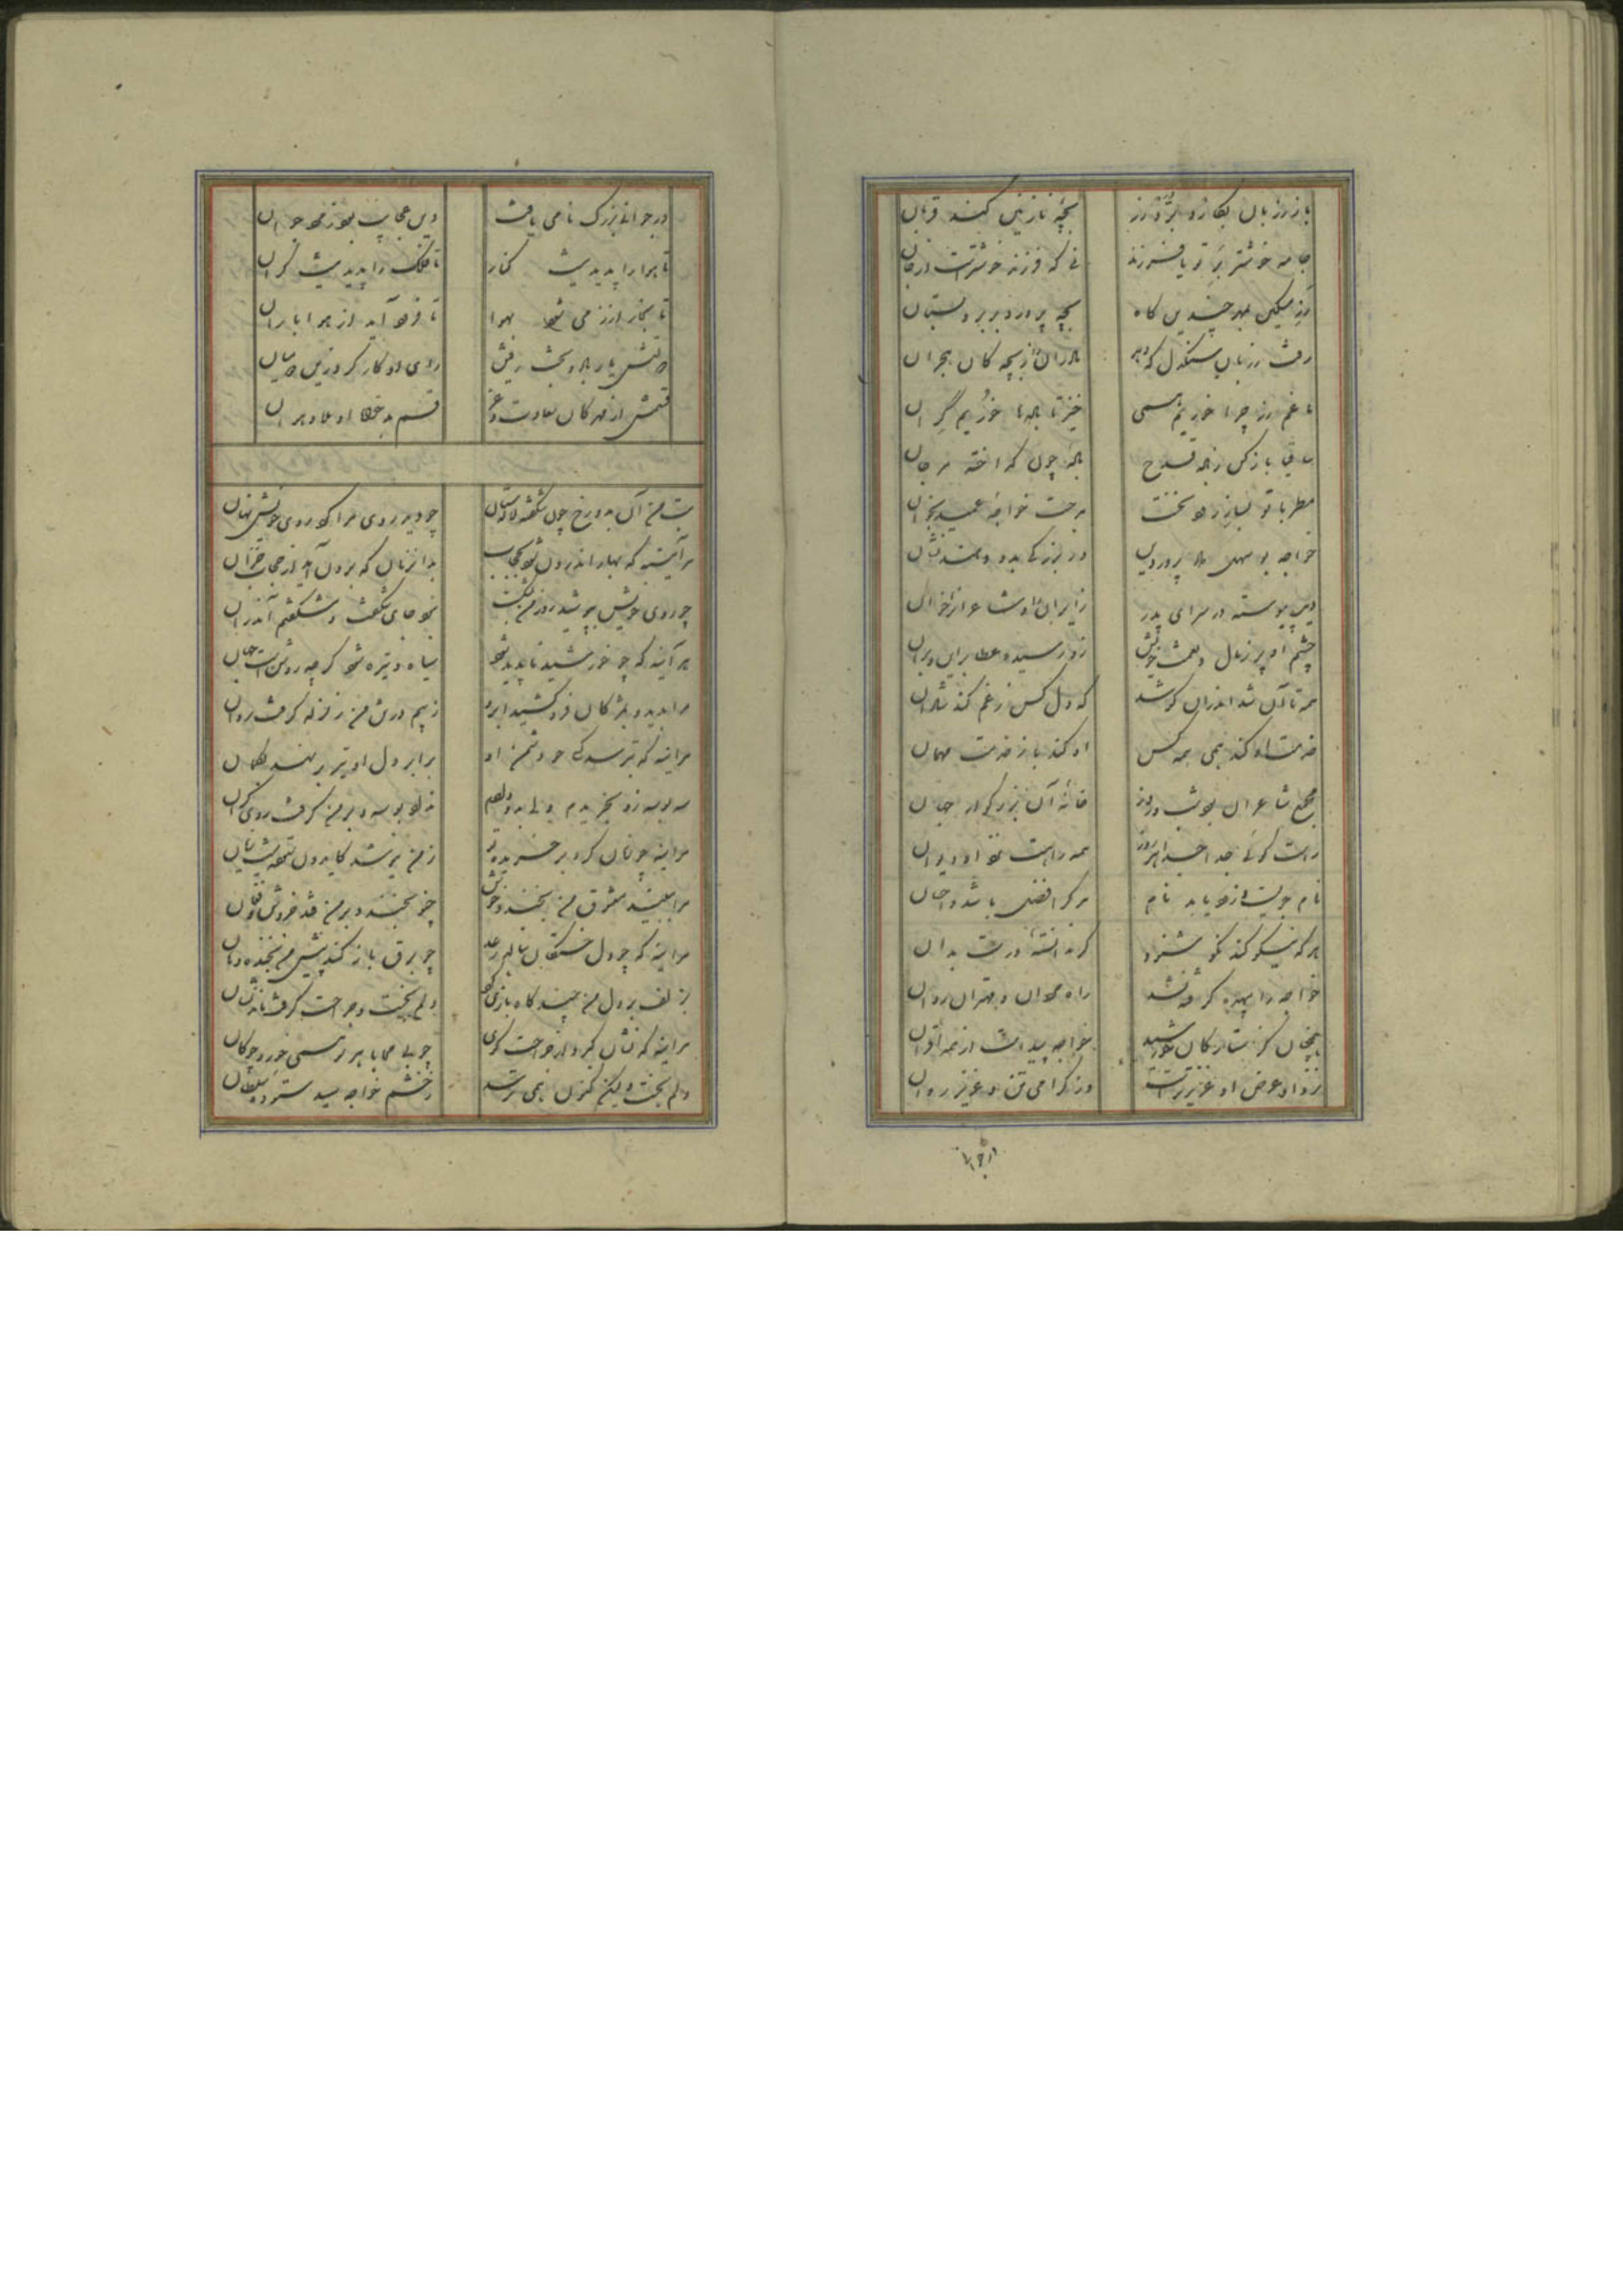 باز رزبان بکارد برد رز
بچه نازنین کند قربان
جامه خوشتر بر تو یا فرزند
نی که فرزند خوشترست از جان
رز مسکین بمهر چندین گاه
بچه پرورد در بر و پستان
رفت رزبان سنگدل که دهد
مادران را ز بچگان هجران
ما غم رز چرا خوریم همی
خیز تا باده‌ها خوریم گران
ساقی باز کن ز باده قدح
باده چون گداخته مرجان
مطربا تو بساز رود نخست
مدحت خواجه عمید بخوان
خواجه بو سهل پروردین
در بزرگی بدو دهند نشان
دیر پیوسته در سرای پدر
زایران را و شاعران را خوان
چشم او پر ز مال و نعمت خویش
زو رسیده عطا برین و بران
همه تا آن شد اندران کوشد
که دل کس ز غم کند شادان
خدمت او کند همی همه کس
او کند باز خدمت مهمان
مجمع شاعران بود شب و روز
خانه آن بزرگوار جهان
راست گوئی جدا جدا هر روز
همه را هست نزد او دیوان
نام جویست و زود یابد نام
هر کرا فضل باشد و احسان
هر که نیکو کند نکو شنود
گر ندانسته‌ای درست بدان
خواجه را بهره گرفته نشد
راه خوان و مهتران روان
همچنان کز ستارگان خورشید
خواجه پیداست از همه اقران
نزد او عرض او عزیزترست
وز گرامی تن و عزیز روان
در جوانی بزرگ نامی یافت
وین عجایب بود ز مرد جوان
تا هوا را پدید نیست کنار
تا فلک را پدید نیست کران
تا بخار از زمی شود بهوا
تا فرود آید از هوا باران
دلتش یار باد و بخت رفیق
قسمش از مهرگان سعادت و عز
قسم بدخواه او بلا و هوان
بت من آن بدو رخ چون شکفته لالستان
چو دید روی مرا کرد روی خویش نهان
هر آینه که بهار اندرون شود بحجاب
بدان زمان که برون آید از حجاب خزان
چو روی خویش بپوشید روز من بنهفت
نبود جای شگفت و شگفتم آمد ازان
هر آینه که چو خورشید ناپدید شود
سیاه و تیره شود گرچه روشنست جهان
مرا بدید و بمژگان فرو کشید ابرو
ز بیم در تن من زلزله گرفت روان
هر آینه که بترسد کسی چو دشمن او
برابر دل او تیر بر نهد بکمان
سه بوسه زو بخریدم دلی بدو دادم
نداد بوسه و بر من گرفت روی گران
هر آینه چو زیان کرد بر خریده تر
ز من نپرسد کاید ون نتیجه پشیمان
مرا ببیند معشوق من بخندد خوش
چو بخندد بر من فتد خروش و فغان
هر آینه که چو دل خستگان بنالد رعد
چو برق باز کند پیش من بخنده دهان
بزلف بر دل من چند گاه بازی کرد
دلم بخست و جراحت گرفت ازان نشان
هر آینه که نشان گیرد از جراحت گوی
چو بی محابا هر سو همی خورد چوگان
دلم بخست و لیکن کنون همی ترسد
ز خشم خواجه سید ستوده سلطان
از جوانی